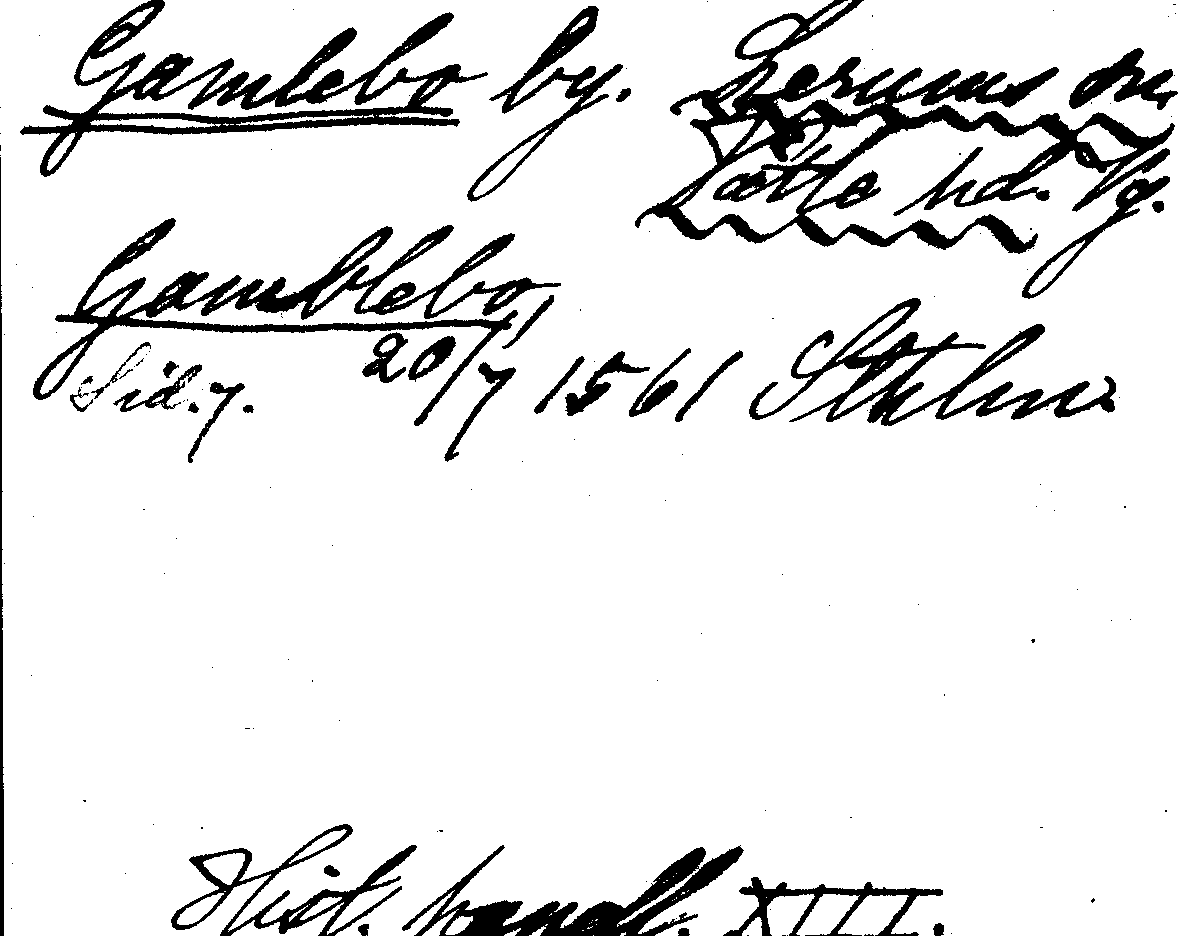 Gamlebo by. Lerums sn,
Sätle hd. Vg.
Gamblebo,
Sid. 7. 20/7 1561 Sthlm.
Hist. handl. XIII.